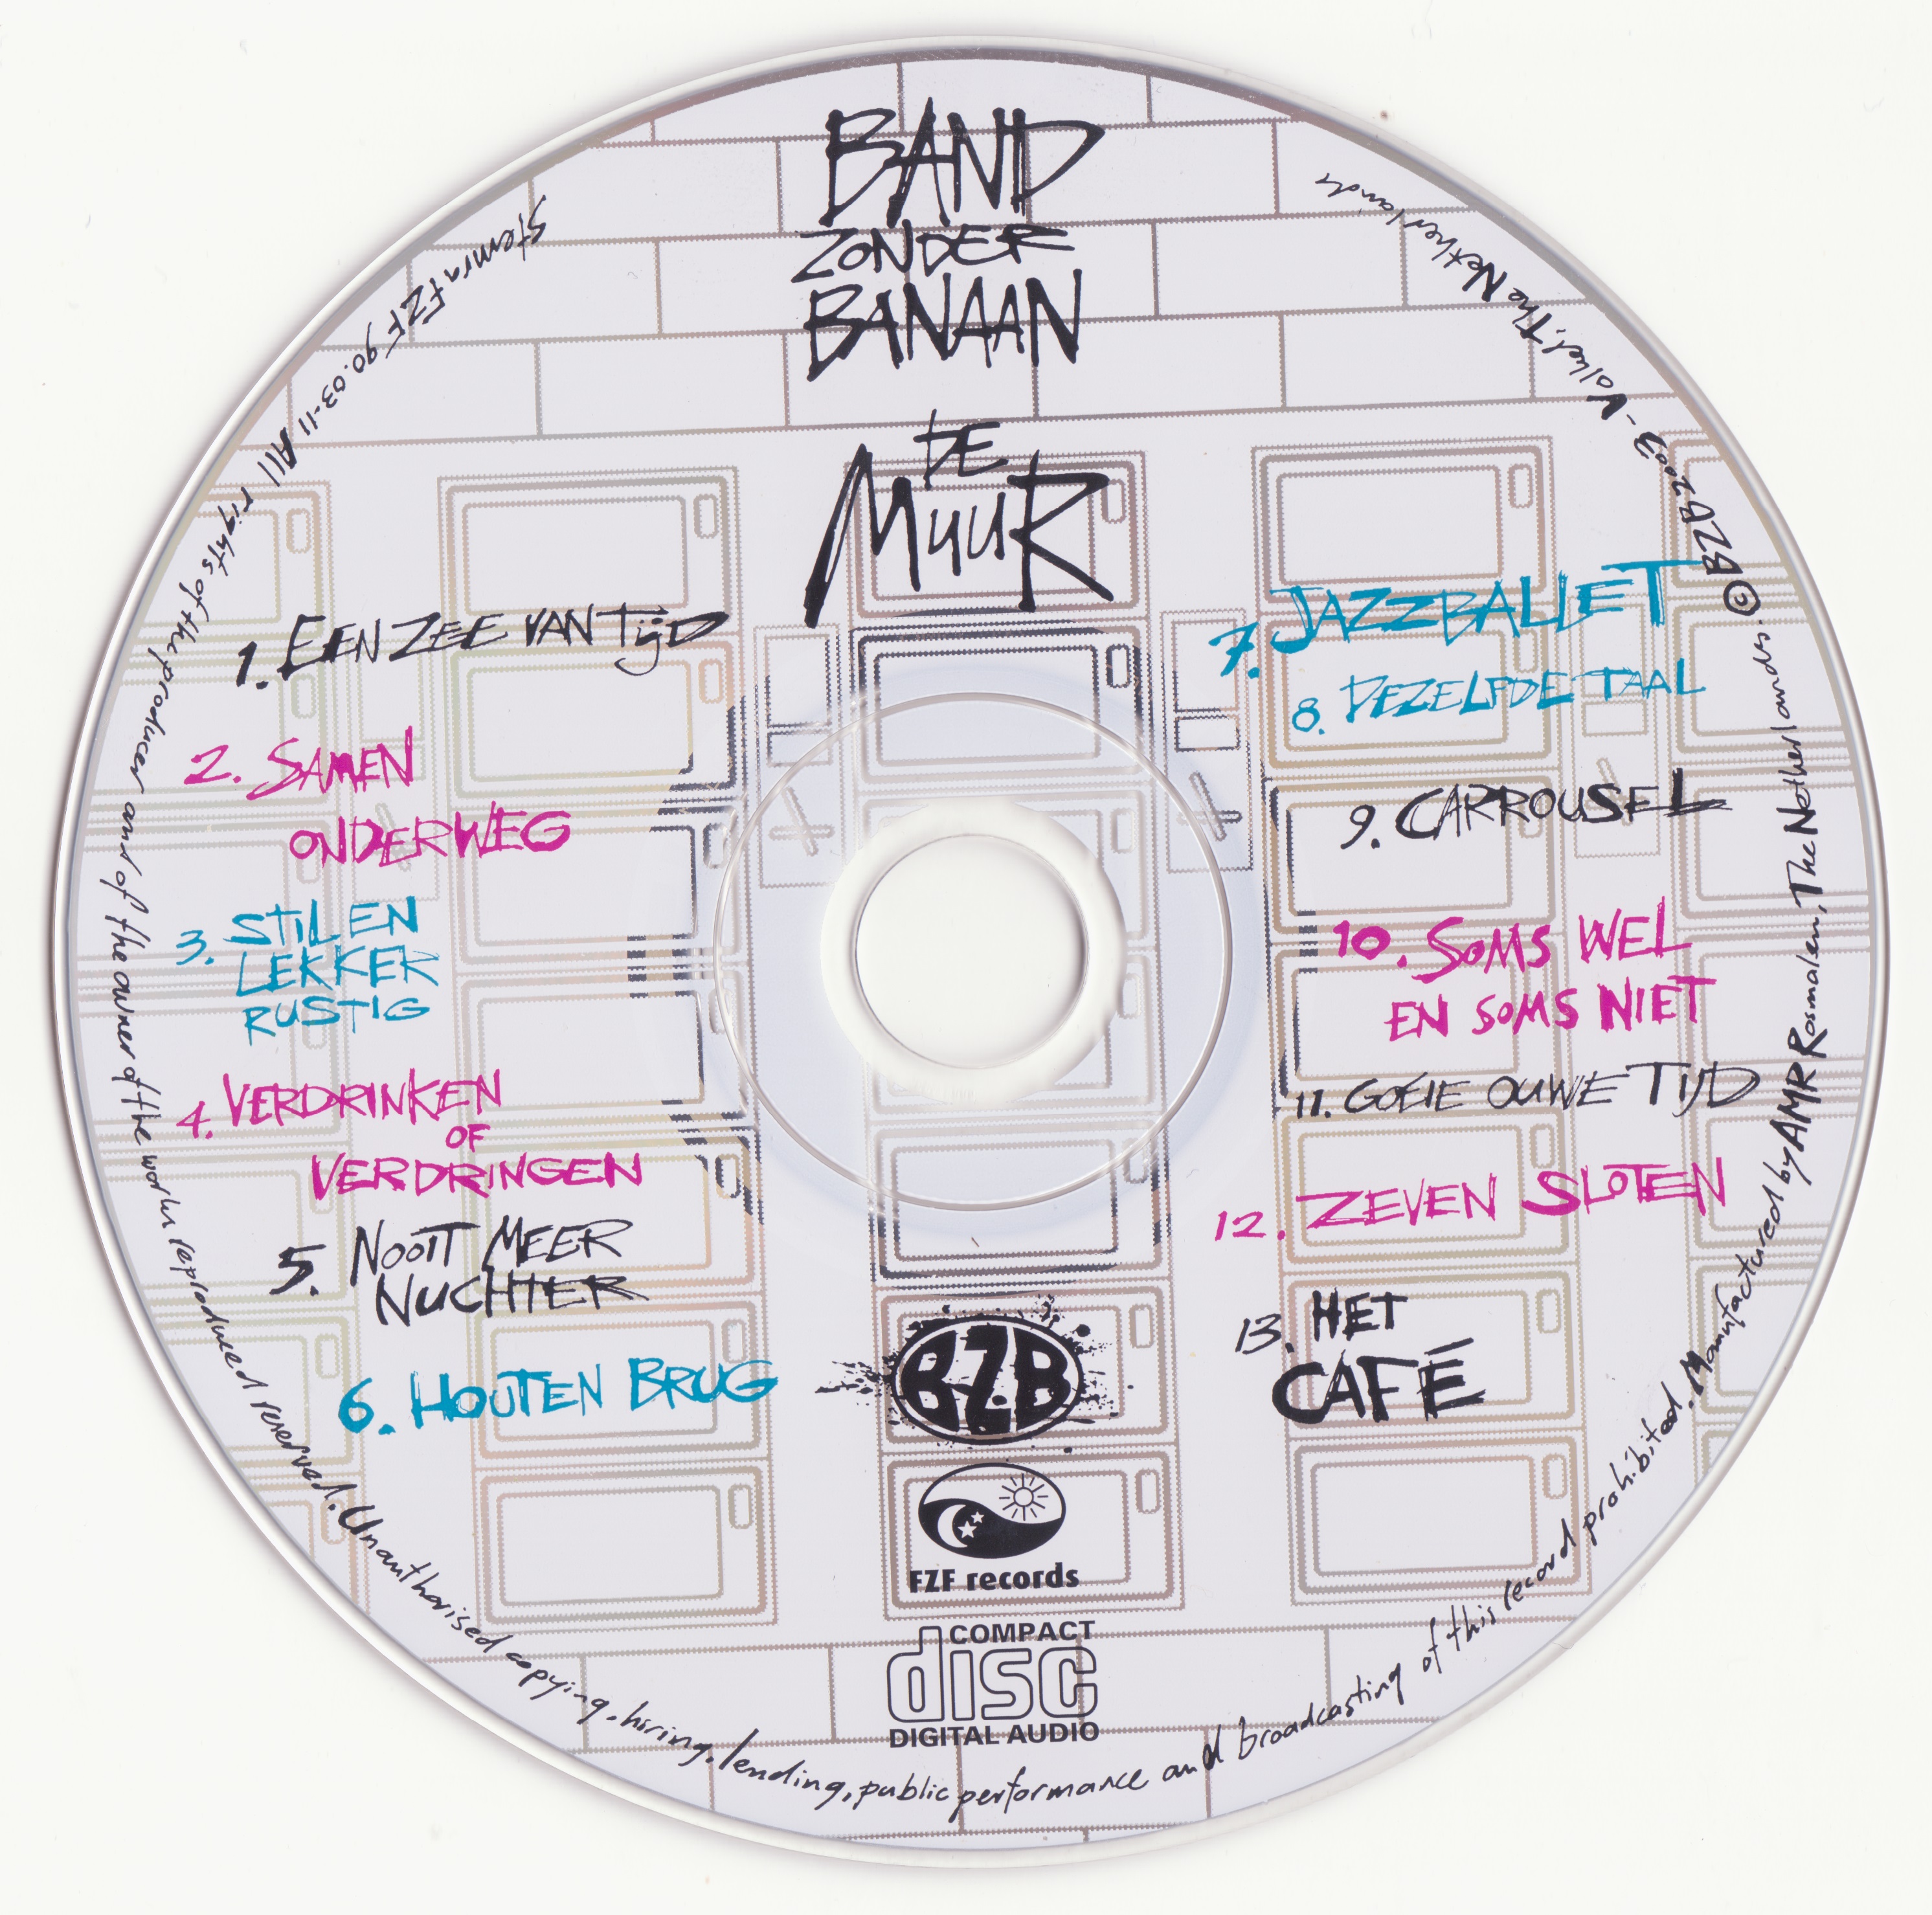 BAND
ZONDER
BANAAN
DE
MUUR
1. EEN ZEE VAN TIJD
2. SAMEN
ONDERWEG
3. STIL EN
LEKKER
RUSTIG
4. VERDRINKEN
OF
VERDRINGEN
5. NOOIT MEER
NUCHTER
6. HOUTEN BRUG
7. JAZZBALLET
8. DEZELFDE TAAL
9. CARROUSEL
10. SOMS WEL
EN SOMS NIET
11. GOEIE OUWE TIJD
12. ZEVEN SLOTEN
13. HET
CAFÉ
BZB
FZF records
COMPACT
disc
DIGITAL AUDIO
Stemra FZF 90.03-11 All rights of the producer and of the owner of the works reproduced reserved. Unauthorised copying, hiring, lending, public performance and broadcasting of this record prohibited. Manufactured by AMR Rosmalen, The Netherlands. © BZB 2003 - Volkel, The Netherlands